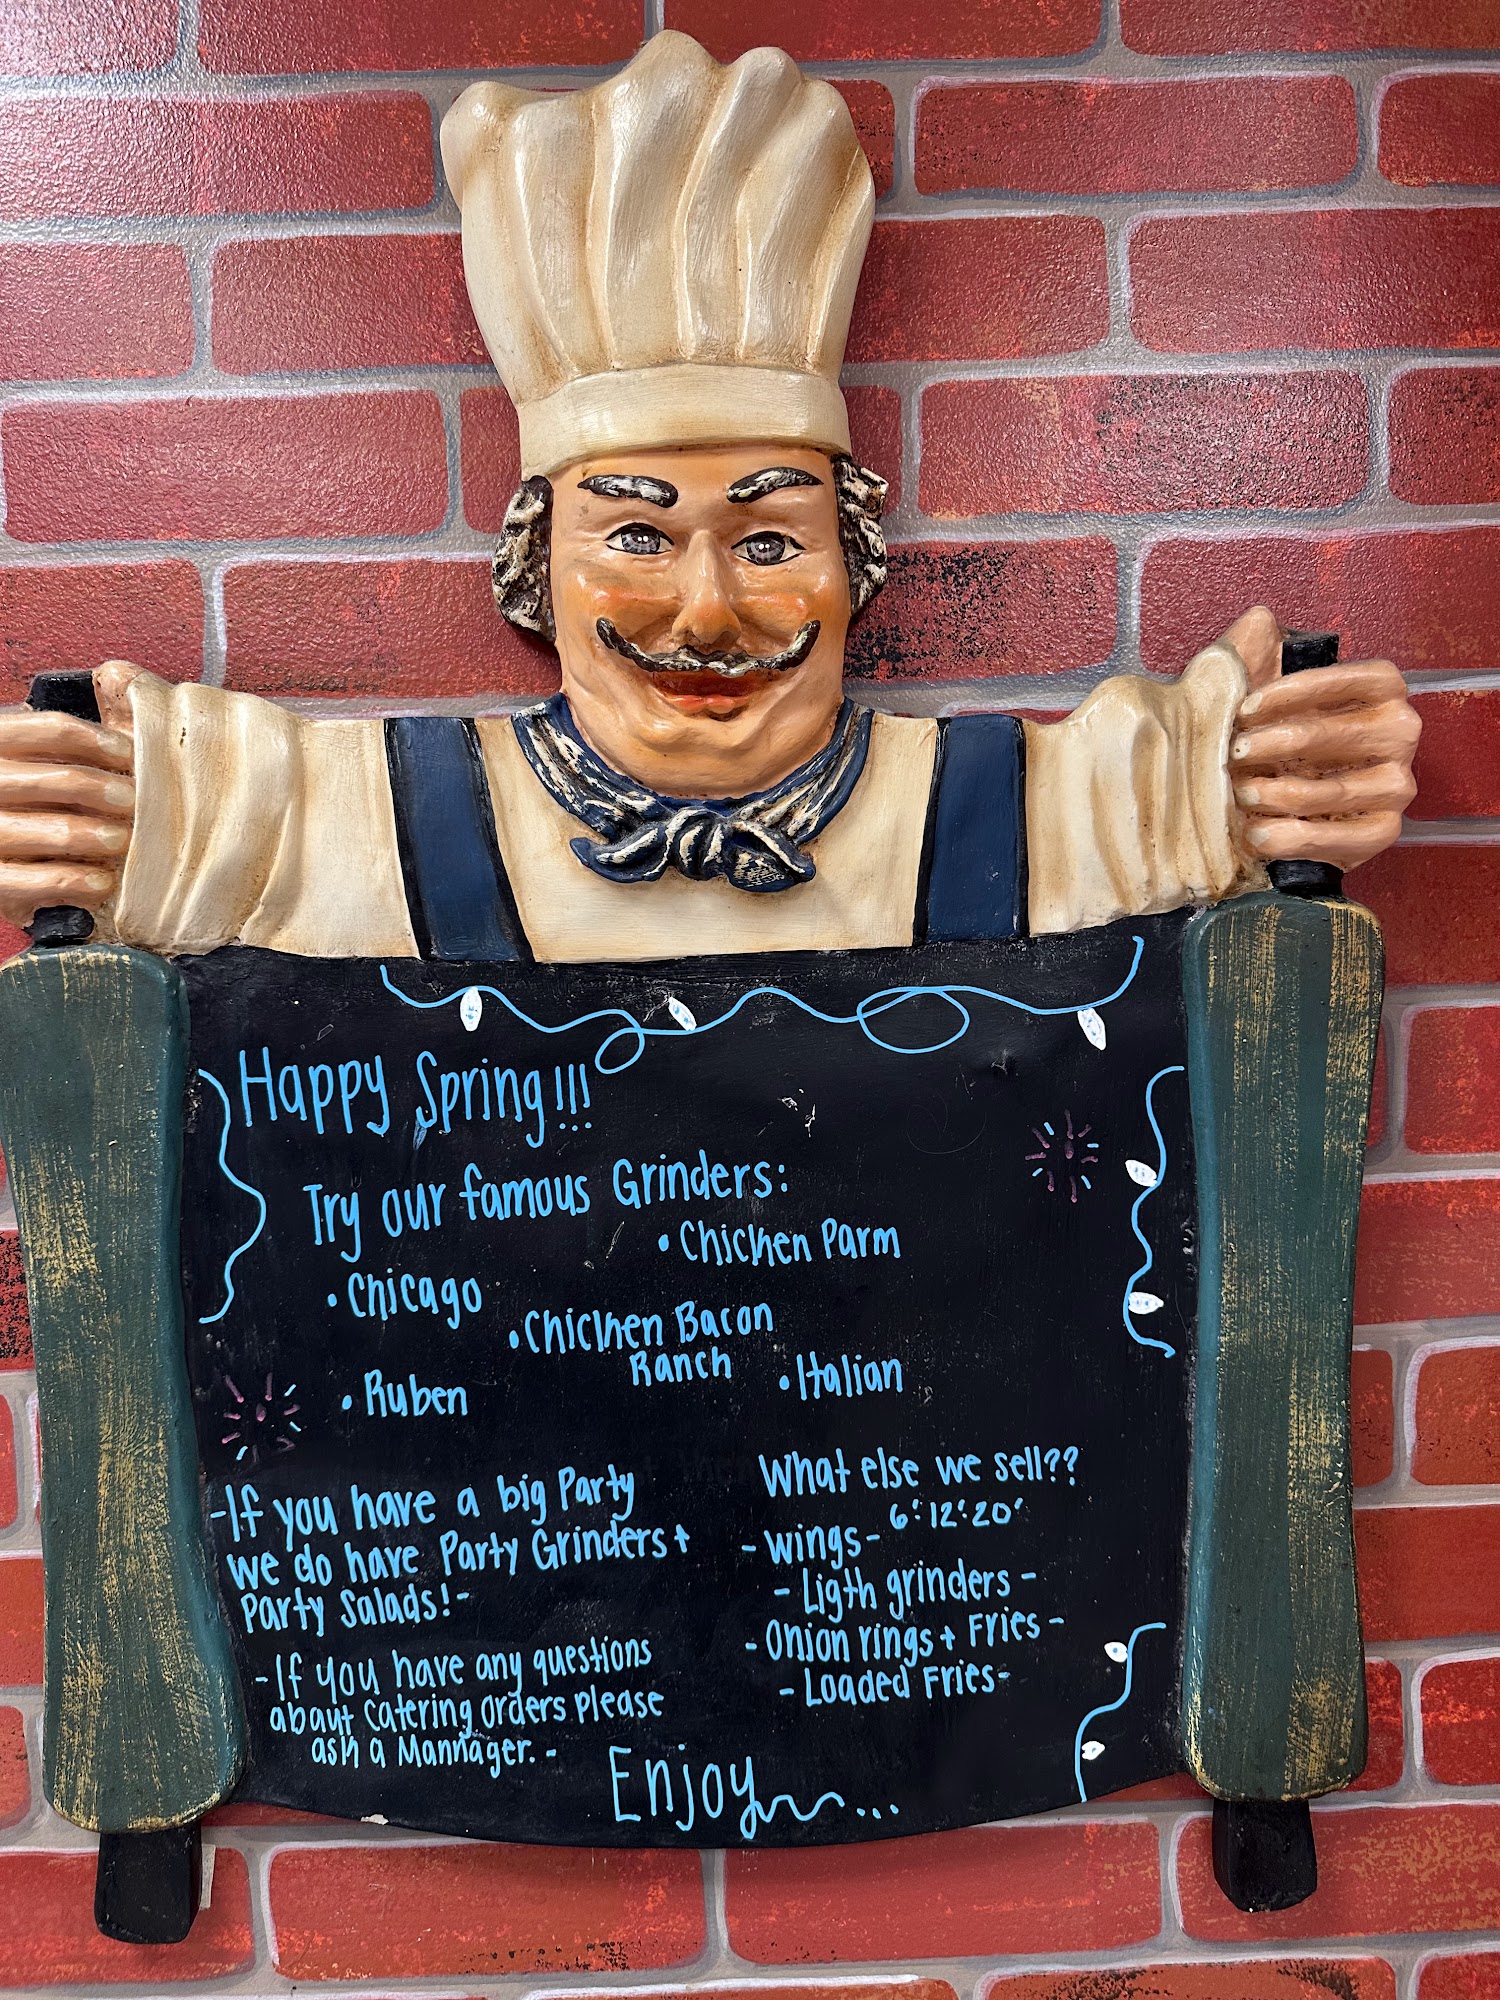 Happy Spring!!!
Try our famous Grinders:
• Chicken Parm
• Chicago
• Chicken Bacon
Ranch
• Italian
• Ruben
-If you have a big Party
we do have Party Grinders +
Party Salads!-
-If you have any questions
about Catering orders please
ask a Mannager.-
What else we sell??
- Wings- 6':12':20'
- Ligth grinders -
- Onion rings + Fries -
- Loaded Fries-
Enjoy...